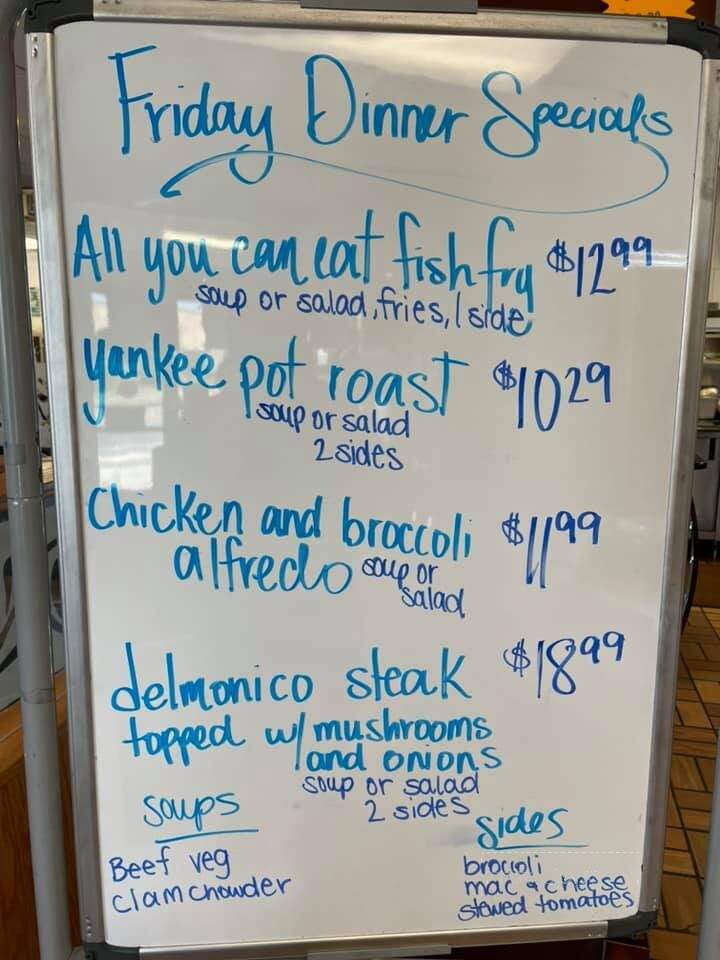 Friday Dinner Specials
All you can eat fish fry $12.99
soup or salad, fries, 1 side
yankee pot roast $10.29
soup or salad
2 sides
Chicken and broccoli $11.99
alfredo soup or
salad
delmonico steak $18.99
topped w/ mushrooms
and onions
soup or salad
2 sides
soups
Beef veg
clam chowder
sides
broccoli
mac & cheese
stewed tomatoes